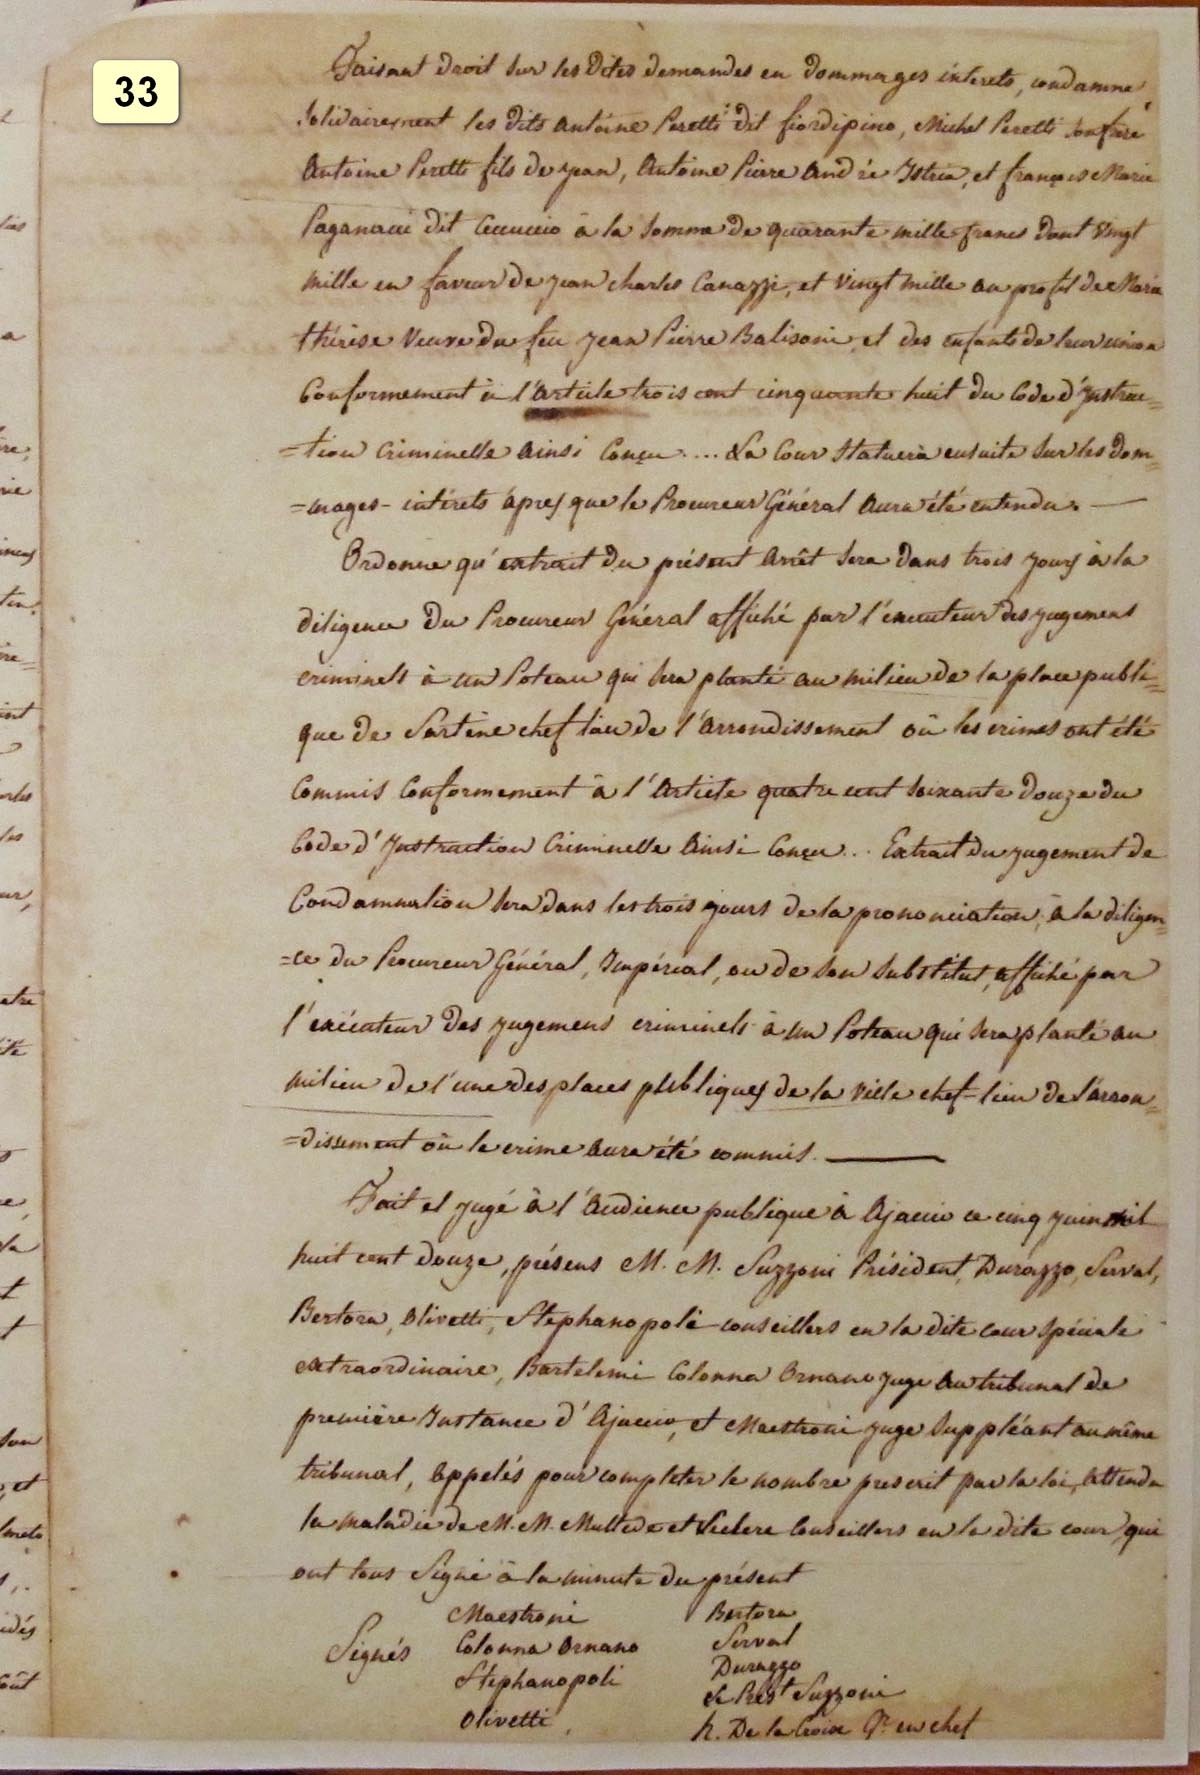 33
Faisant droit sur les dites demandes en dommages intérets, condamne
solidairement les dits Antoine Peretti dit fiordipino, Michel Peretti son frère
Antoine Peretti fils de jean, Antoine Pierre André Istria, et françois Marie
Paganacci dit à la somme de quarante mille francs dont vingt
mille en faveur de jean charles Canazzi, et vingt mille au profit de Marie
thérèse veuve du feu jean Pierre Balisoni et des enfants de leur union
Conformement à l'Article trois cent cinquante huit du Code d'Instruc=
=tion Criminelle Ainsi Conçu .... La Cour Statuera ensuite sur les dom=
=mages-intérets après que le Procureur Général Aura été entendu. —
Ordonne qu'extrait du présent Arrêt sera dans trois jours à la
diligence du Procureur Général affiché par l'executeur des jugemens
criminels à un Poteau qui sera planté au milieu de la place publi=
que de Sartène chef lieu de l'Arrondissement où les crimes ont été
Commis Conformement à l'Article quatre cent soixante douze du
Code d'Instruction Criminelle Ainsi Conçu ... Extrait du jugement de
Condamnation sera dans les trois jours de la prononciation, à la diligen=
=ce du Procureur Général, Impérial, ou de son Substitut, affiché par
l'exécuteur des jugemens criminels à un Poteau qui sera planté au
milieu de l'une des places publiques de la ville chef-lieu de l'arron=
=dissement où le crime Aura été commis. —
Fait et jugé à l'Audience publique à Ajaccio ce cinq juin mil
huit cent douze, présens M. M. Suzzoni Président, Durazzo, Serval,
Bertora, Olivetti, Stephanopoli conseillers en la dite cour spéciale
extraordinaire, Bartelemi Colonna Ornano juge au tribunal de
première Instance d'Ajaccio, et Maestroni juge suppléant au même
tribunal, Appelés pour completer le nombre prescrit par la loi, Attendu
la maladie de M. M. Multedo et Conseillers en la dite cour, qui
ont tous Signé à la minute du présent
Signés
Maestroni
Colonna Ornano
Stephanopoli
Olivetti
Bertora
Serval
Durazzo
Le Prest Suzzoni
h. De la Croix Gr. en chef